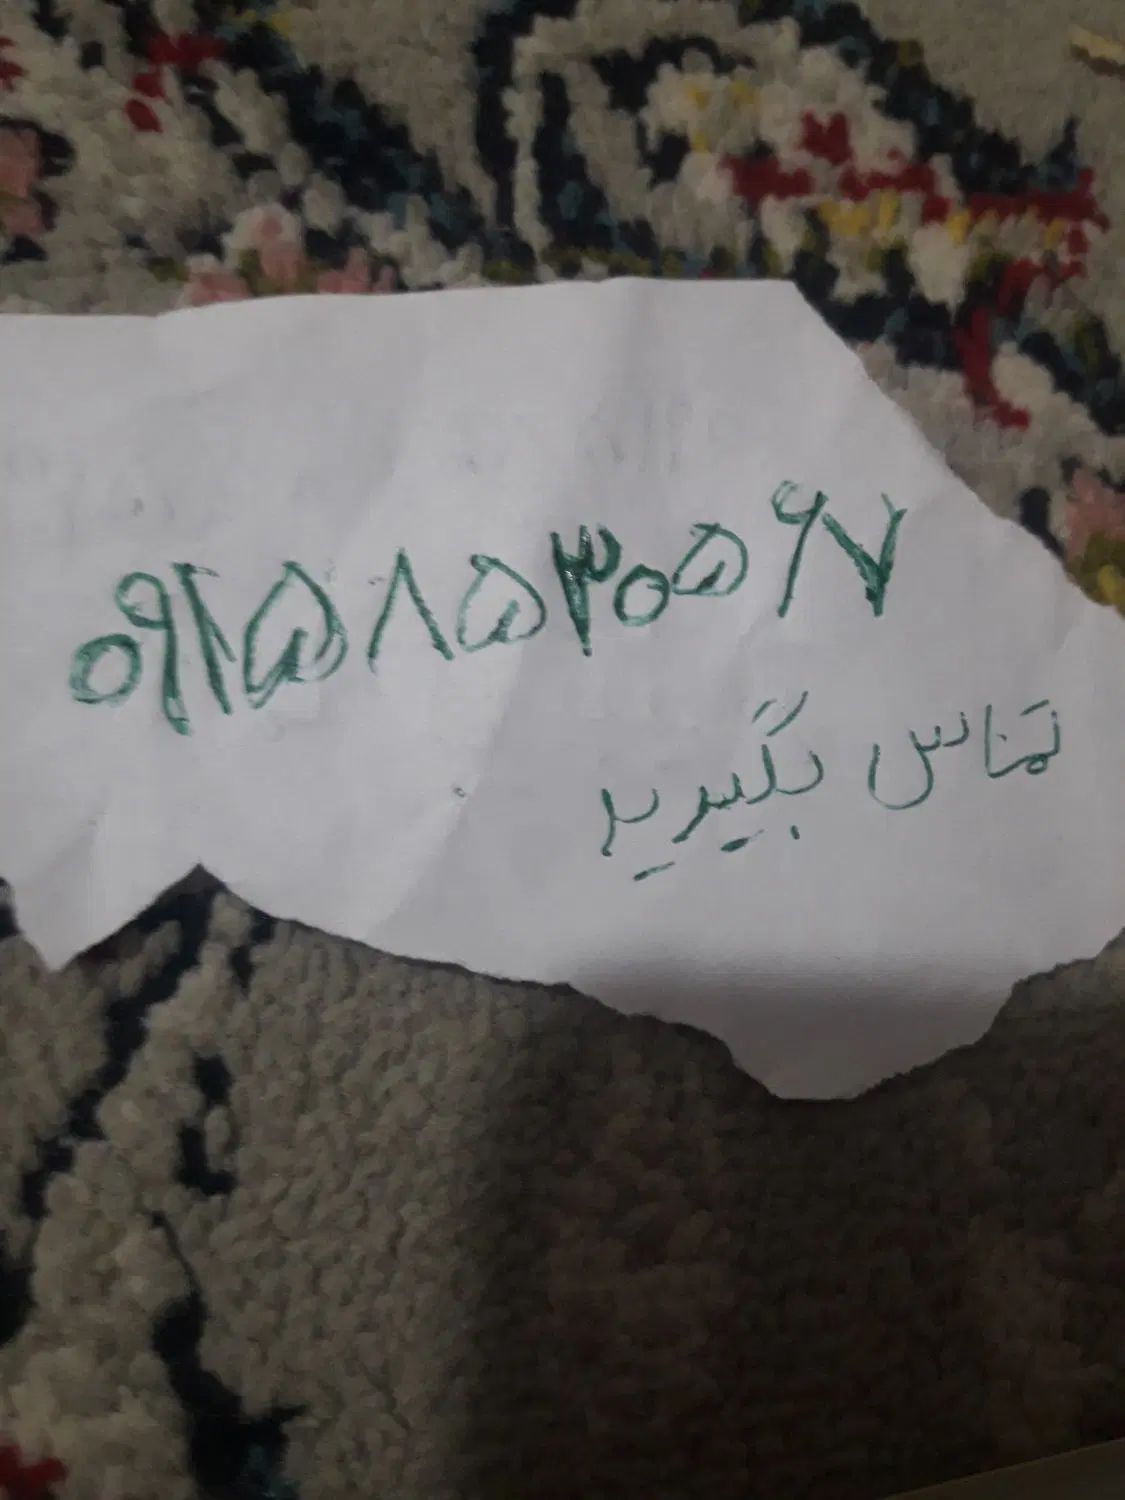 ۰۹۱۵۸۵۳۰۵۶۷
تماس بگیرید